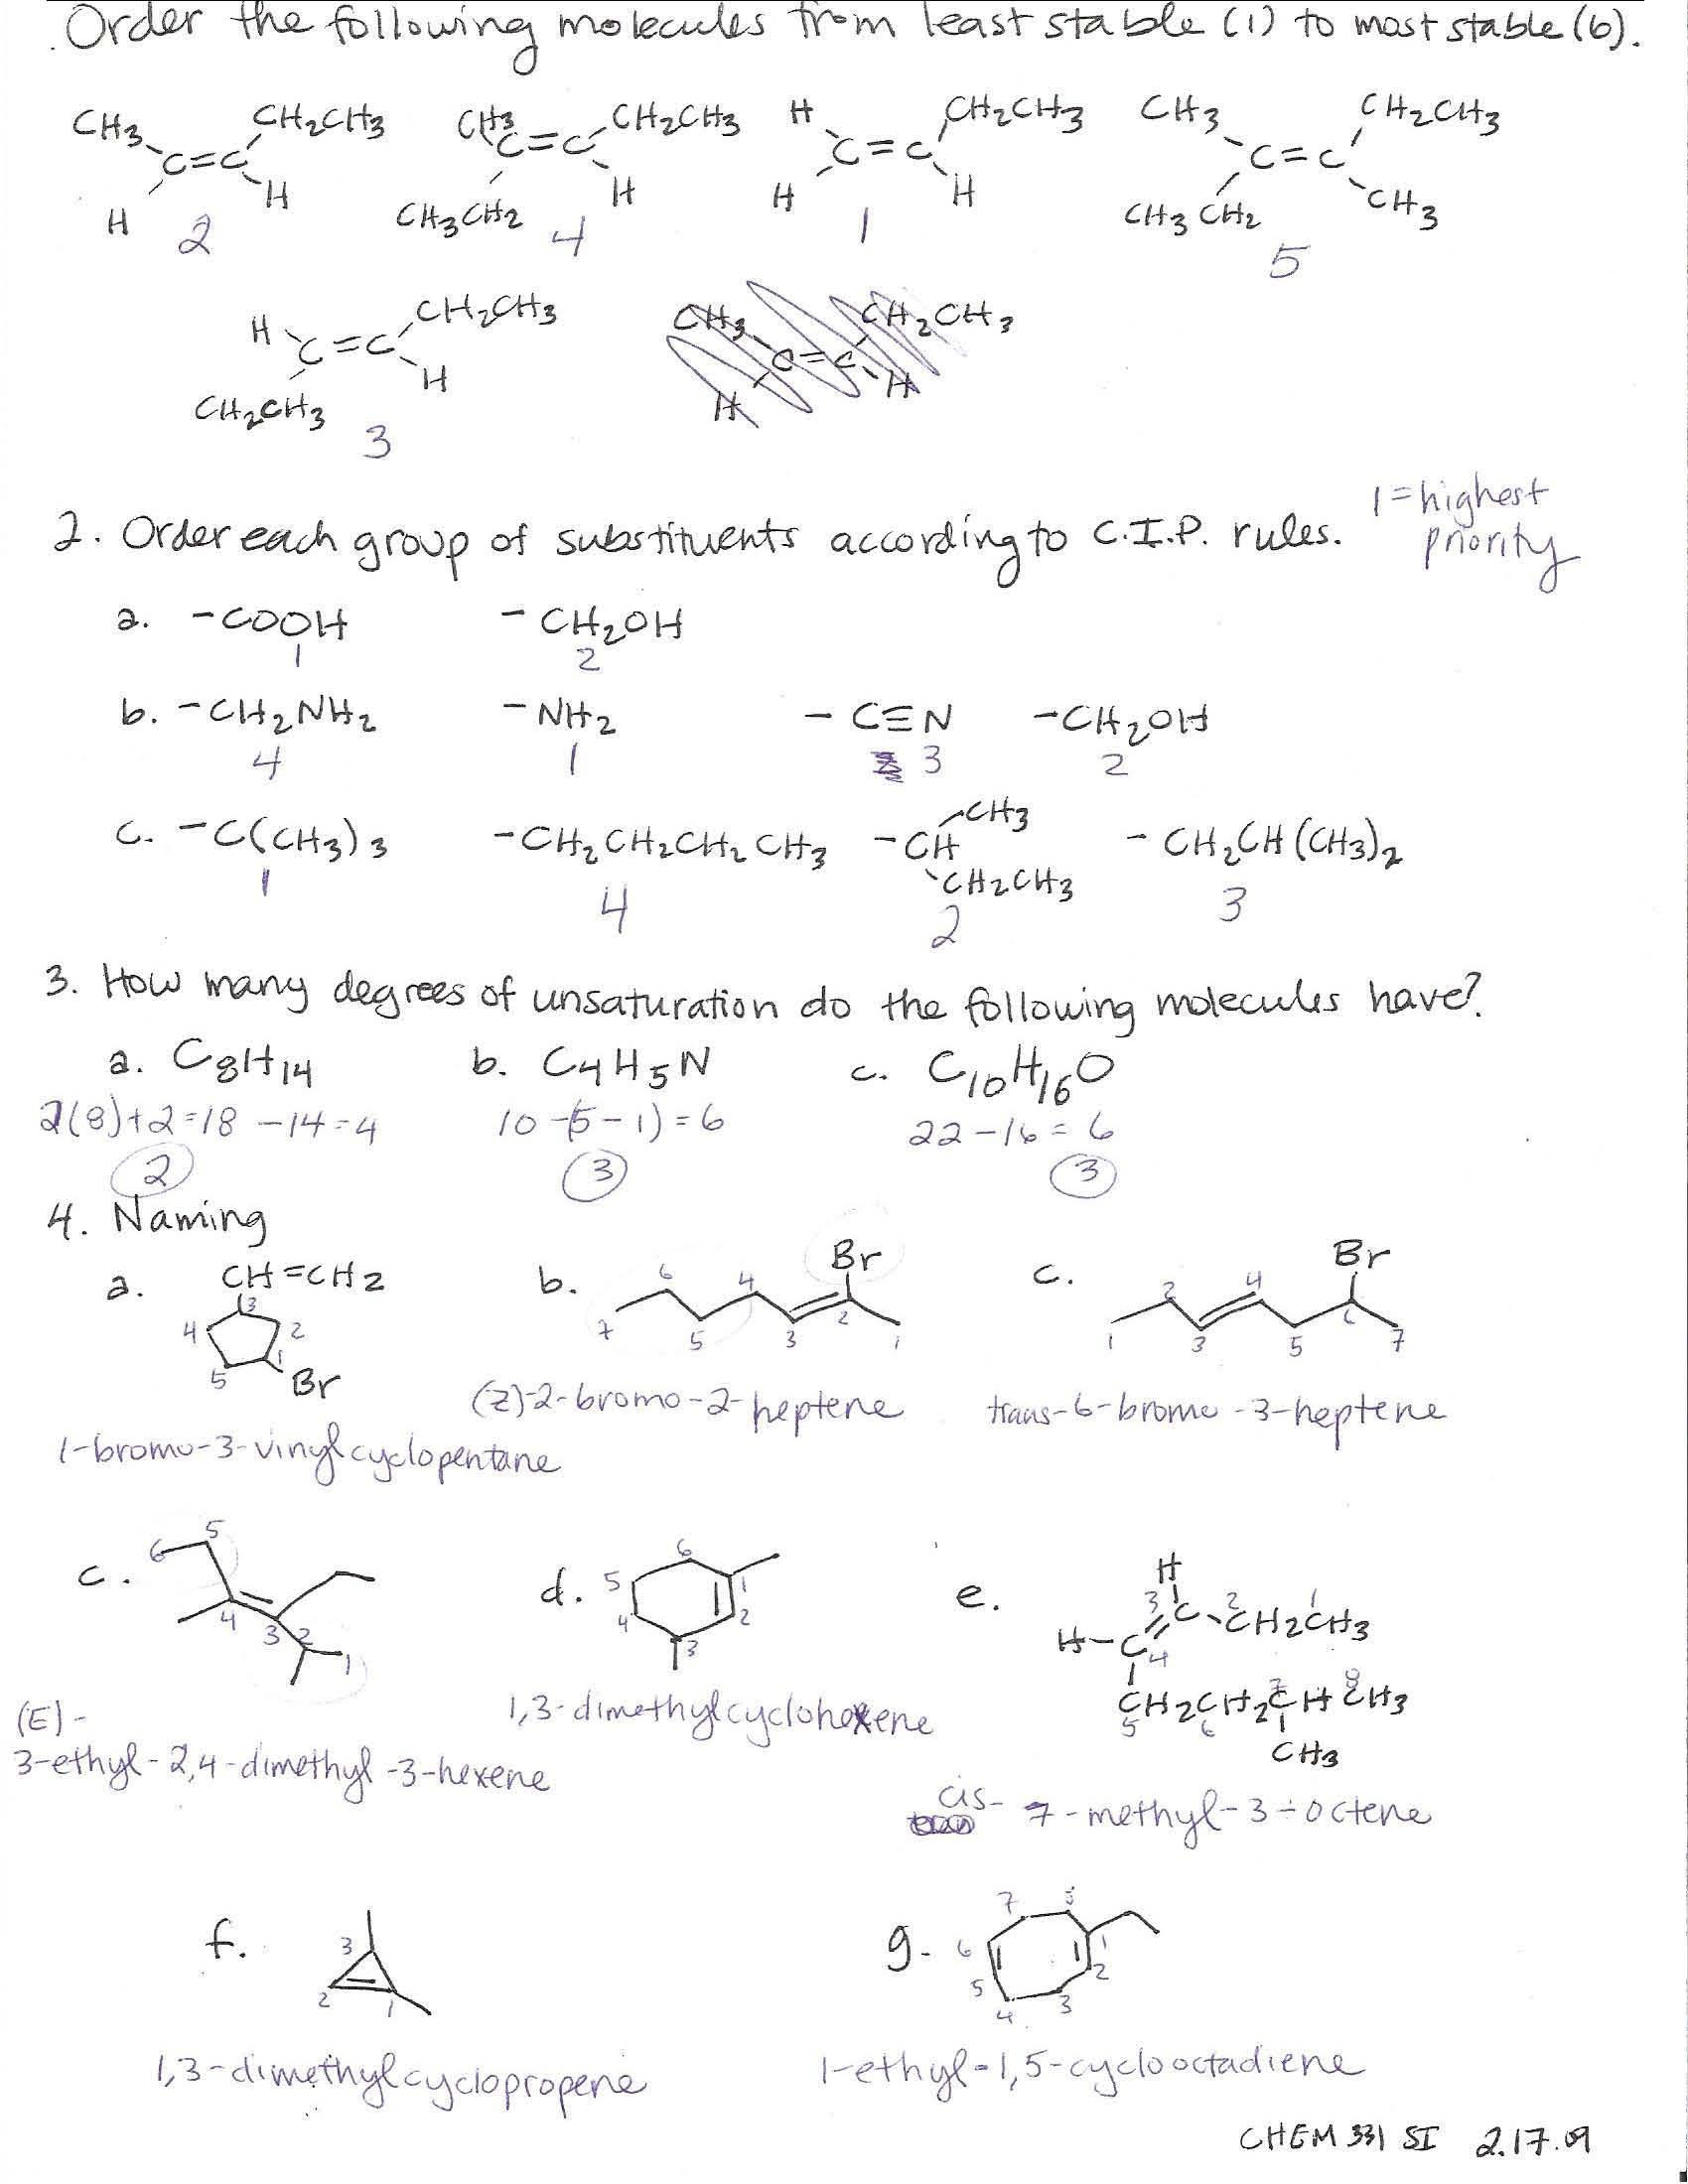 Order the following molecules from least stable (1) to most stable (6).
CH3 CH2CH3 CH3 CH2CH3 H CH2CH3 CH3 CH2CH3
C=C C=C C=C C=C
H H CH3CH2 H H H CH3CH2 CH3
2 4 1 5
H CH2CH3 CH3 CH2CH3
C=C C=C
CH2CH3 H H H
3
1 = highest
2. Order each group of substituents according to C.I.P. rules. priority
a. -COOH -CH2OH
1 2
b. -CH2NH2 -NH2 -C≡N -CH2OH
4 1 3 2
c. -C(CH3)3 -CH2CH2CH2CH3 -CH CH3 CH2CH3 -CH2CH(CH3)2
1 4 2 3
3. How many degrees of unsaturation do the following molecules have?
a. C8H14 b. C4H5N c. C10H16O
2(8)+2=18 -14=4 10-(5-1)=6 22-16=6
2 3 3
4. Naming
a. CH=CH2 b. Br c. Br
3 4 2 1 5 Br 7 6 5 4 3 2 1 1 2 3 4 5 6 7
(Z)-2-bromo-2-heptene trans-6-bromo-3-heptene
1-bromo-3-vinylcyclopentane
c. 6 5 4 3 2 1 d. 5 6 1 4 3 2 e. H
3 C 2 CH2 1 CH3
H-C 4
CH2CH2CHCH3
5 6 7 8
CH3
(E)- 1,3-dimethylcyclohexene
3-ethyl-2,4-dimethyl-3-hexene
cis- 7-methyl-3-octene
f. 3 2 1 g. 7 8 6 1 5 2 4 3
1,3-dimethylcyclopropene 1-ethyl-1,5-cyclooctadiene
CHEM 331 SI 2.17.09